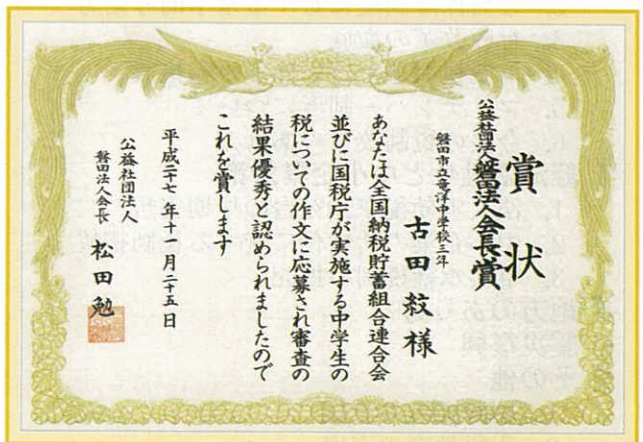 賞状
公益社団法人磐田法人会長賞
磐田市立竜洋中学校三年
古田紋様
あなたは全国納税貯蓄組合連合会
並びに国税庁が実施する中学生の
税についての作文に応募され審査の
結果優秀と認められましたので
これを賞します
平成二十七年十一月二十五日
公益社団法人
磐田法人会長 松田勉